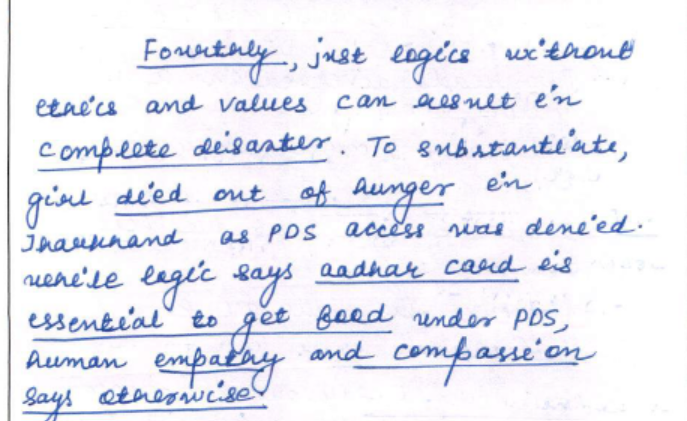 Fourthly, just logics without
ethics and values can result in
complete disaster. To substantiate,
girl died out of hunger in
Jharkhand as PDS access was denied.
while logic says aadhar card is
essential to get food under PDS,
human empathy and compassion
says otherwise.